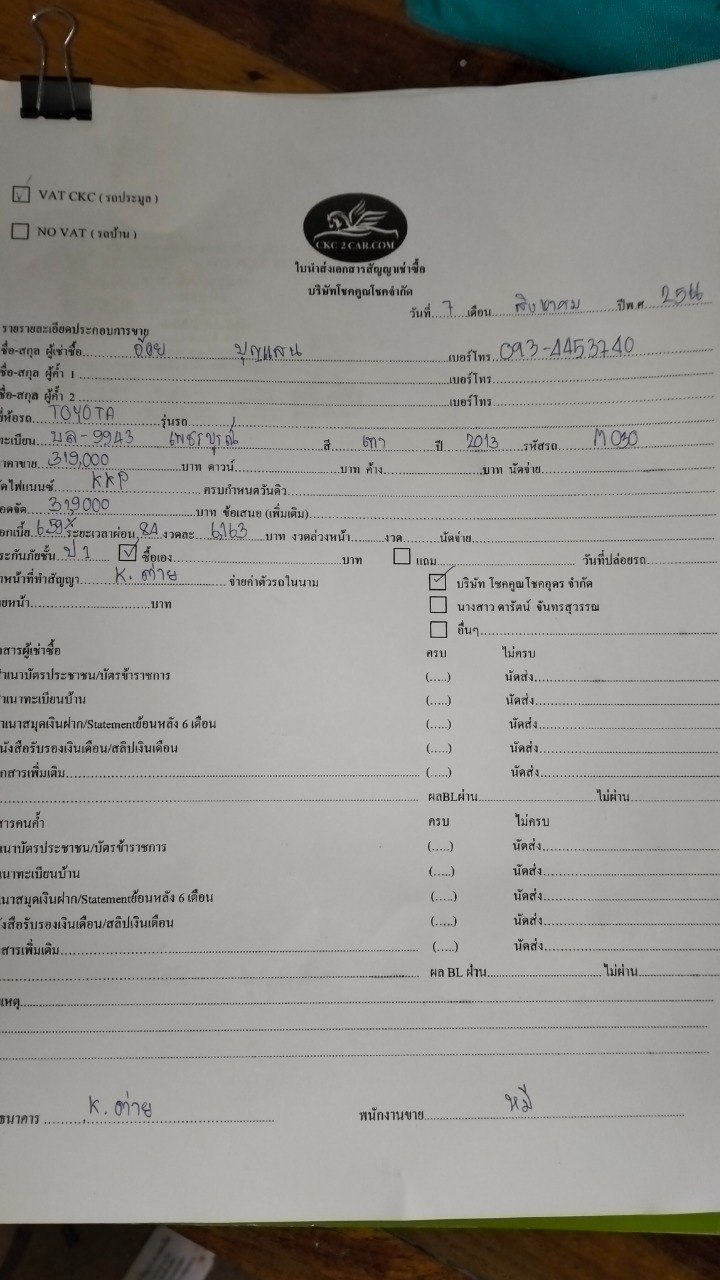 VAT CKC ( รถประมูล )
NO VAT ( รถบ้าน )
CKC 2 CAR.COM
ใบนำส่งเอกสารสัญญาเช่าซื้อ
บริษัทโชคคูณโชคจำกัด
วันที่ 7 เดือน สิงหาคม ปีพ.ศ.
รายรายละเอียดประกอบการขาย
ชื่อ-สกุล ผู้เช่าซื้อ อ้อย บุญแสน เบอร์โทร 093-4453740
ชื่อ-สกุล ผู้ค้ำ 1 เบอร์โทร
ชื่อ-สกุล ผู้ค้ำ 2 เบอร์โทร
ี่ห้อรถ TOYOTA รุ่นรถ
ทะเบียน 9943 เพชรบูรณ์ สี เทา ปี 2013 รหัสรถ M030
าคาขาย 319,000 บาท ดาวน์ บาท ค้าง บาท นัดจ่าย
ัดไฟแนนซ์ KKP ครบกำหนดวันดิว
อดจัด 319,000 บาท ข้อเสนอ (เพิ่มเติม)
อกเบี้ย 6.59% ระยะเวลาผ่อน 84 งวดละ 6,163 บาท งวดล่วงหน้า งวด นัดจ่าย
ระกันภัยชั้น ป 1 ซื้อเอง บาท แถม วันที่ปล่อยรถ
าหน้าที่ทำสัญญา K. ต่าย จ่ายค่าตัวรถในนาม บริษัท โชคคูณโชคอุดร จำกัด
ยหน้า บาท นางสาว ดารัตน์ จันทรสุวรรณ
อื่นๆ
อสารผู้เช่าซื้อ ครบ ไม่ครบ
ำเนาบัตรประชาชน/บัตรข้าราชการ (.....) นัดส่ง
ำเนาทะเบียนบ้าน (.....) นัดส่ง
ำเนาสมุดเงินฝาก/Statementย้อนหลัง 6 เดือน (.....) นัดส่ง
นังสือรับรองเงินเดือน/สลิปเงินเดือน (.....) นัดส่ง
กสารเพิ่มเติม (.....) นัดส่ง
ผลBLผ่าน ไม่ผ่าน
สารคนค้ำ ครบ ไม่ครบ
เนาบัตรประชาชน/บัตรข้าราชการ (.....) นัดส่ง
นาทะเบียนบ้าน (.....) นัดส่ง
เนาสมุดเงินฝาก/Statementย้อนหลัง 6 เดือน (.....) นัดส่ง
ังสือรับรองเงินเดือน/สลิปเงินเดือน (.....) นัดส่ง
สารเพิ่มเติม (.....) นัดส่ง
ผล BL ผ่าน ไม่ผ่าน
เหตุ
ธนาคาร K. ต่าย พนักงานขาย หมี